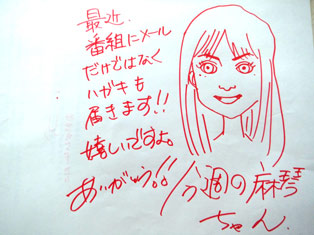 最近、
番組にメール
だけではなく
ハガキも
届きます!!
嬉しいですよ。
ありがとう!!
今週の麻琴
ちゃん.